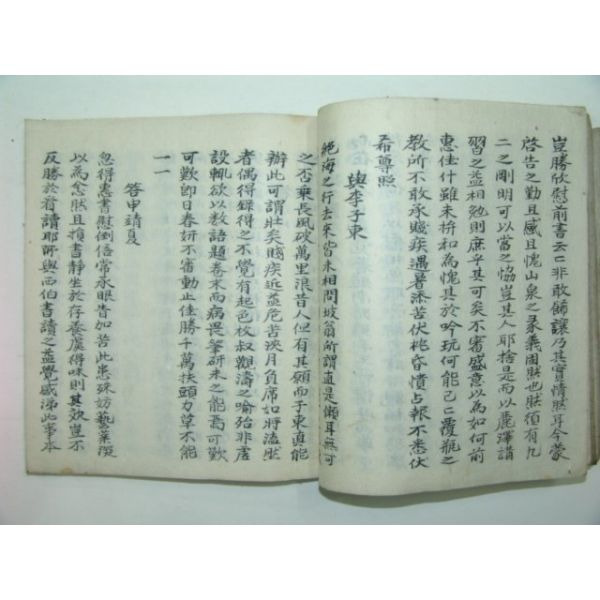 豈勝欣慰前書云云非敢飾讓乃其實情然耳今蒙
啓告之勤且感且愧山泉之彖義固然也然須有九
二之剛明可以當之恊豈其人耶捨是而以麗澤講
習之益相勉則庶乎其可矣不審盛意以為如何前
惠佳什雖未拚和為愧其於吟玩何能已已覆瓿之
教所不敢承賤疾遇暑添苦伏枕昏憒占報不悉伏
希尊照
與李子東
絕海之行去來皆未相問坡翁所謂直是懶耳無可
之否乘長風破萬里浪昔人但有其願而子東直能
辦此可謂壯矣賤疾近益危苦浹月負席如將溘然
者偶得錄得之不覺有起色枚叔觀濤之喻殆非虛
設輒欲以數語題卷末而病畏筆硏未之能焉可歎
可歎即日春姸不審動止佳勝千萬扶頭力草不能
一一
答申靖夏
忽得惠書慰倒倍常承眼眚加苦此患殊妨藝業深
以為念然且損書靜坐於存養處得味則其效豈不
反勝於看讀耶所與西伯書讀之益覺感涕此事本